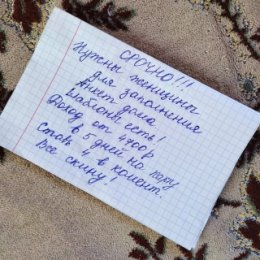 СРОЧНО!!!
Нужны женщины
для заполнения
Анкет дома
Шаблоны есть!
Доход от 4700р
в 5 дней на пару
Ставь 4 в комент.
Все скину!